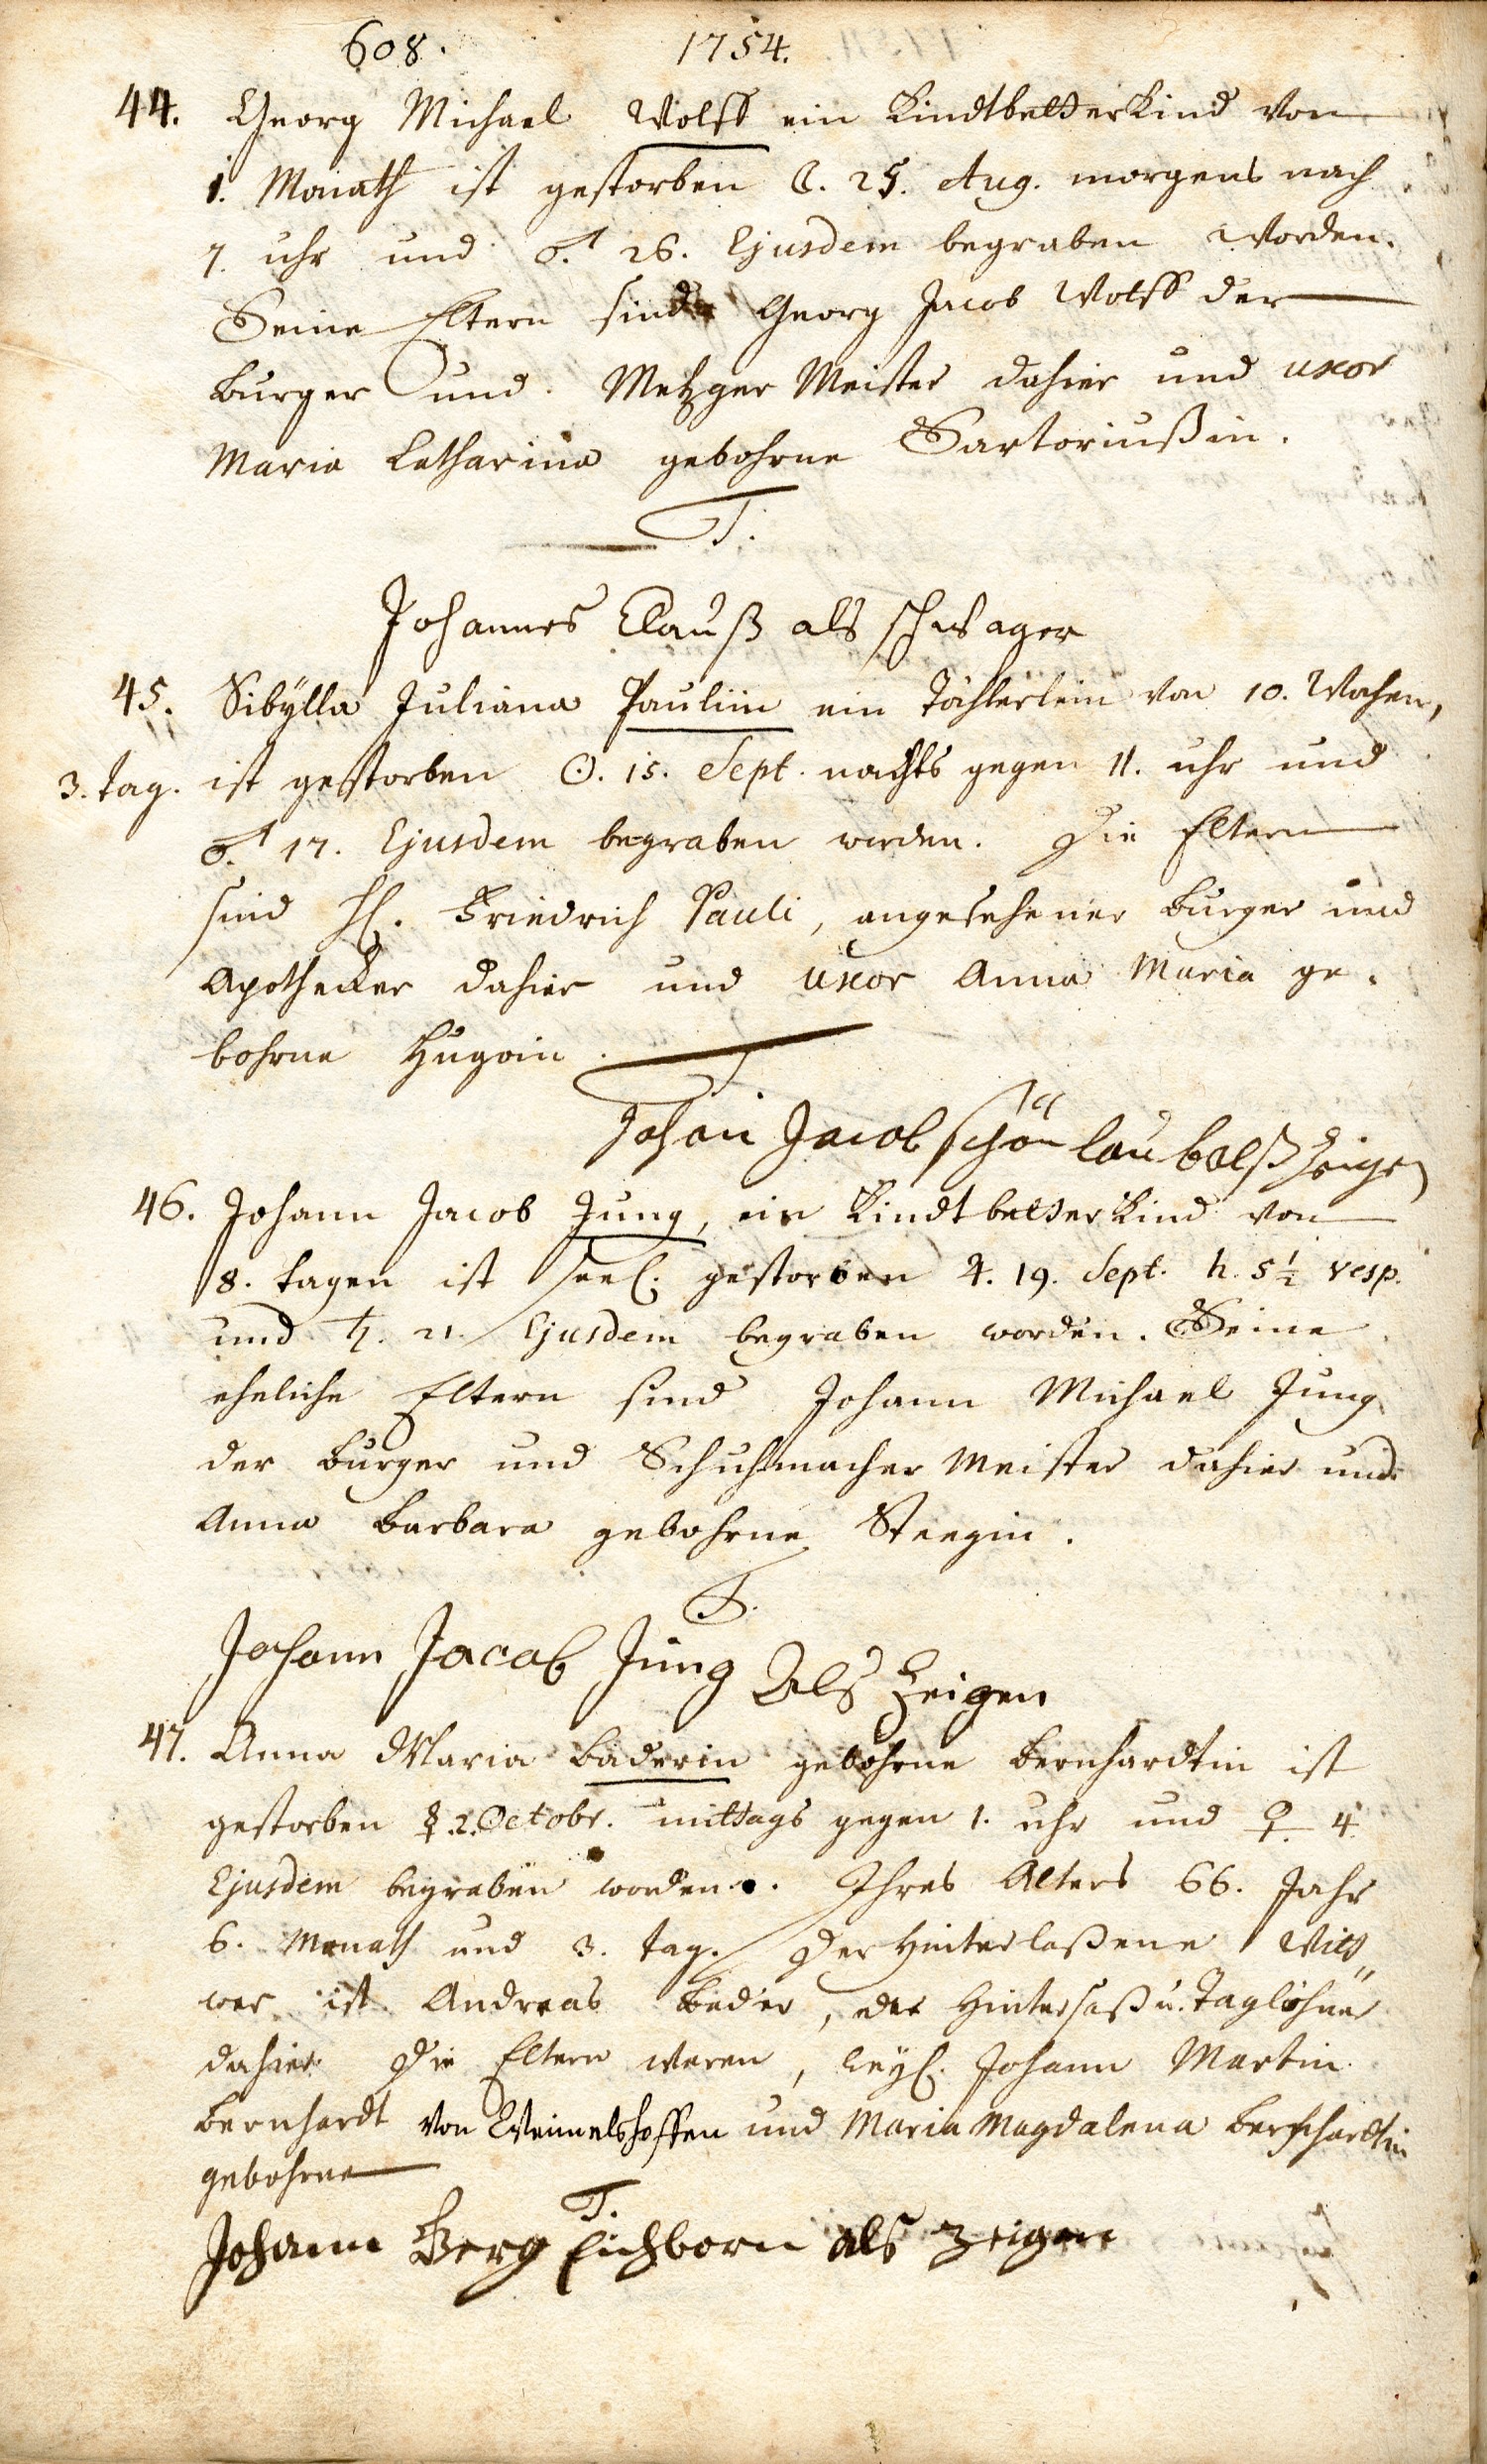 608. 1754.
44. Georg Michael Wolff ein Kindtbetterkind von
1. Monath ist gestorben ☾. 25. Aug. morgens nach
7. uhr und ♂. 26. Ejusdem begraben worden.
Seine Eltern sind Georg Jacob Wolff der
burger und Metzger Meister dahier und uxor
Maria Catharina gebohrne Sartoriußin.
T.
Johannes Clauß als schwager
45. Sibÿlla Juliana Pauliin ein Töchterlein von 10. Wochen,
3. tag. ist gestorben ☉. 15. Sept. nachts gegen 11. uhr und
♂. 17. Ejusdem begraben worden. Die Eltern
sind H. Friedrich Pauli, angesehener burger und
Apothecker dahier und uxor Anna Maria ge-
bohrne Hugoin.
T
Johan Jacob schön laub alß Zeigen
46. Johann Jacob Jung, ein Kindtbetterkind von
8. tagen ist seel. gestorben ♃. 19. Sept. h. 5 1/2 vesp.
und ♄. 21. Ejusdem begraben worden. Seine
eheliche Eltern sind Johann Michael Jung
der burger und Schuhmacher Meister dahier und
Anna Barbara gebohrne Steegin.
T.
Johann Jacob Jung Als Zeigen
47. Anna Maria Baderin gebohrne Bernhardtin ist
gestorben ☿. 2. Octobr. mittags gegen 1. uhr und ♀. 4.
Ejusdem begraben worden. Ihres Alters 66. Jahr
6. Monath und 3. tag. Der Hinterlaßene Witt„
wer ist Andreas Beder, der Hintersaß u. Taglöhner
dahier. Die Eltern waren, weyl. Johann Martin
Bernhardt von Weimelshoffen und Maria Magdalena Bernhardtin
gebohrne
T.
Johann Gerg Eichborn als Zeigen